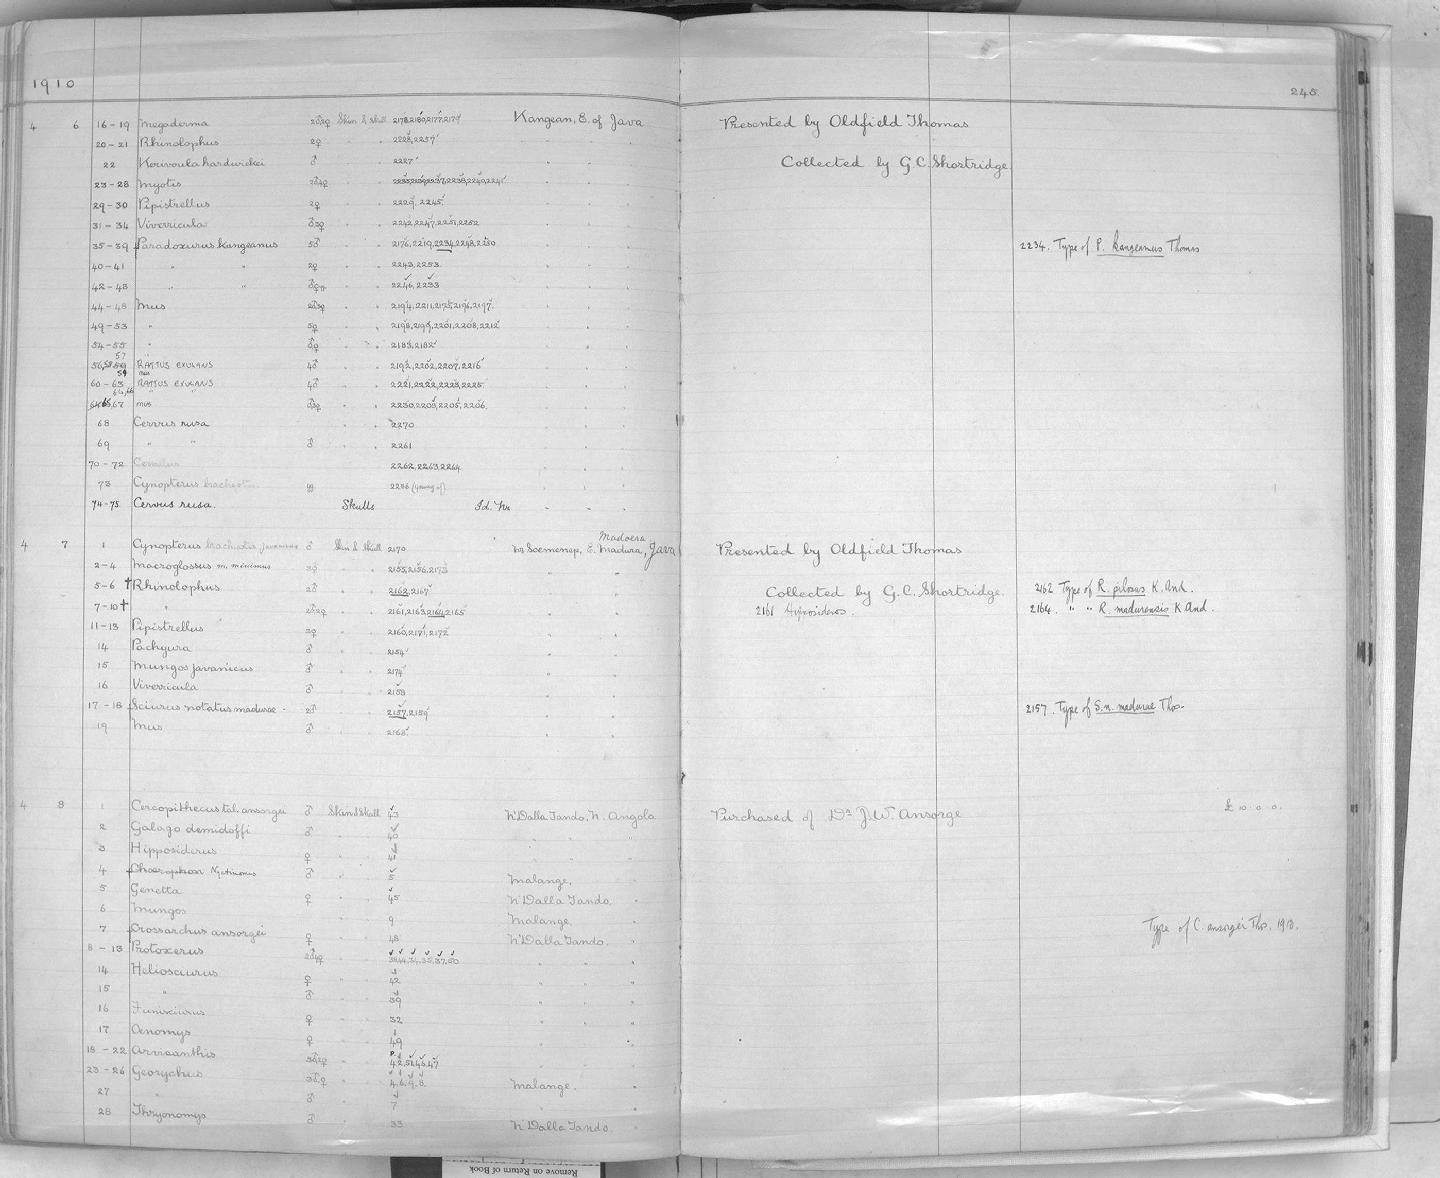 1910
245.
4 6 16-19 Megaderma 2♂2♀ Skin & Skull 2178,2180,2177,2179 Kangean, E. of Java Presented by Oldfield Thomas
20-21 Rhinolophus 2♀ " " 2228,2257 " "
22 Kerivoula hardwickei ♂ " " 2227 " " Collected by G.C. Shortridge
23-28 Myotis " "
29-30 Pipistrellus 2♀ " " 2229, 2245 " "
31-34 Viverricula ♂3♀ " " 2242,2247,2251,2252 " "
35-39 Paradoxurus kangeanus 5♂ " " 2176,2219,2234,2248,2250 " " 2234. Type of P. kangeanus Thomas
40-41 " " 2♀ " " 2243,2253 " "
42-43 " " " " 2246,2233 " "
44-48 Mus 2♂3♀ " " 2194,2211,2175,2196,2197 " "
49-53 " 5♀ " " 2198,2199,2201,2208,2212 " "
54-55 " ♂♀ " " 2183,2182 " "
57
RATTUS EXULANS 4♂ " " 2192,2202,2207,2216 " "
59 mus
60-63 RATTUS EXULANS 4♂ " " 2221,2222,2223,2225 " "
67 mus ♂3♀ " " 2230,2203,2205,2206 " "
68 Cervus rusa " " 2270 " "
69 " " ♂ " " 2261 " "
70-72 2262,2263,2264 " "
73 Cynopterus 2236 (young of) " "
74-75 Cervus rusa. Skulls Id. Nr " "
Madoera
4 7 1 Cynopterus brachiotis javanicus ♂ Skin & Skull 2170 Nr Soemenep, E. Madura, Java Presented by Oldfield Thomas
2-4 Macroglossus m. minimus 3♀ " " 2155,2156,2173 " "
5-6 † Rhinolophus 2♂ " " 2162,2167 " " Collected by G.C. Shortridge. 2162 Type of R. pilosus K. And.
7-10 † " 2♂2♀ " " 2161,2163,2164,2165 " " 2161 Hipposideros. 2164. " " R. madurensis K And.
11-13 Pipistrellus 3♀ " " 2160,2171,2172 " "
14 Pachyura ♂ " " 2154 " "
15 Mungos javanicus ♂ " " 2174 " "
16 Viverricula ♂ " " 2158 " "
17-18 Sciurus notatus madurae - 2♂ " " 2157,2159 " " 2157. Type of S.n. madurae Thos.
19 Mus ♂ " " 2168 " "
4 8 1 Cercopithecus tal. ansorgei ♂ Skin & Skull 43 N'Dalla Tando, N. Angola Purchased of Dr. J.W. Ansorge £10.0.0.
2 Galago demidoffi ♂ " " 40 " "
3 Hipposiderus ♀ " " 41 " "
4 Chaerephon Nyctinomus ♂ " " 5 Malange. "
5 Genetta ♀ " " 45 N'Dalla Tando. "
6 Mungos " " 9 Malange. "
7 Crossarchus ansorgei ♀ " " 48 N'Dalla Tando. " Type of C. ansorgei Thos. 1910.
8-13 Protoxerus 2♂4♀ " " " "
14 Heliosciurus ♀ " " 42 " "
15 " ♂ " " 39 " "
16 Funisciurus ♀ " " 32 " "
17 Oenomys ♀ " " 49 " "
18-22 Arvicanthis 3♂2♀ " " " "
23-26 Georychus 3♂♀ " " 4.6.9.8. Malange. "
27 " ♂ " " 7 " "
28 Thryonomys ♂ " " 33 N'Dalla Tando. "
Remove on Return of Book